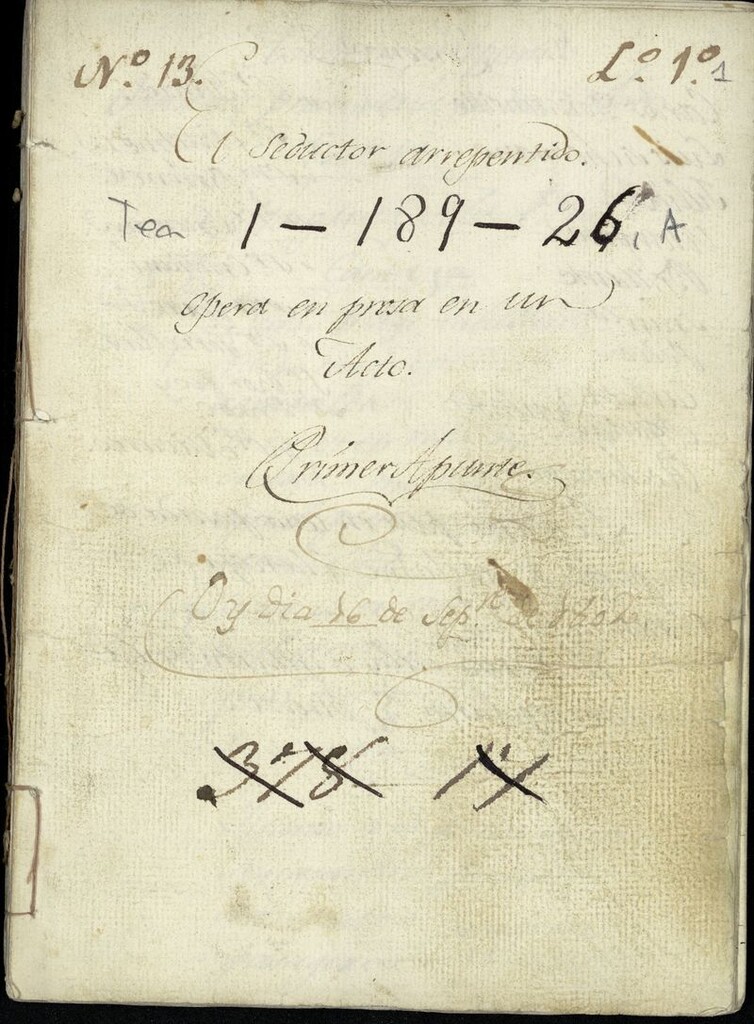 N.º 13. L.º 1.º 1
El Seductor arrepentido.
Tea 1 - 189 - 26, A
opera en prosa en un
Acto.
Primer Apunte.
Oy dia 16 de Sep.re de
378